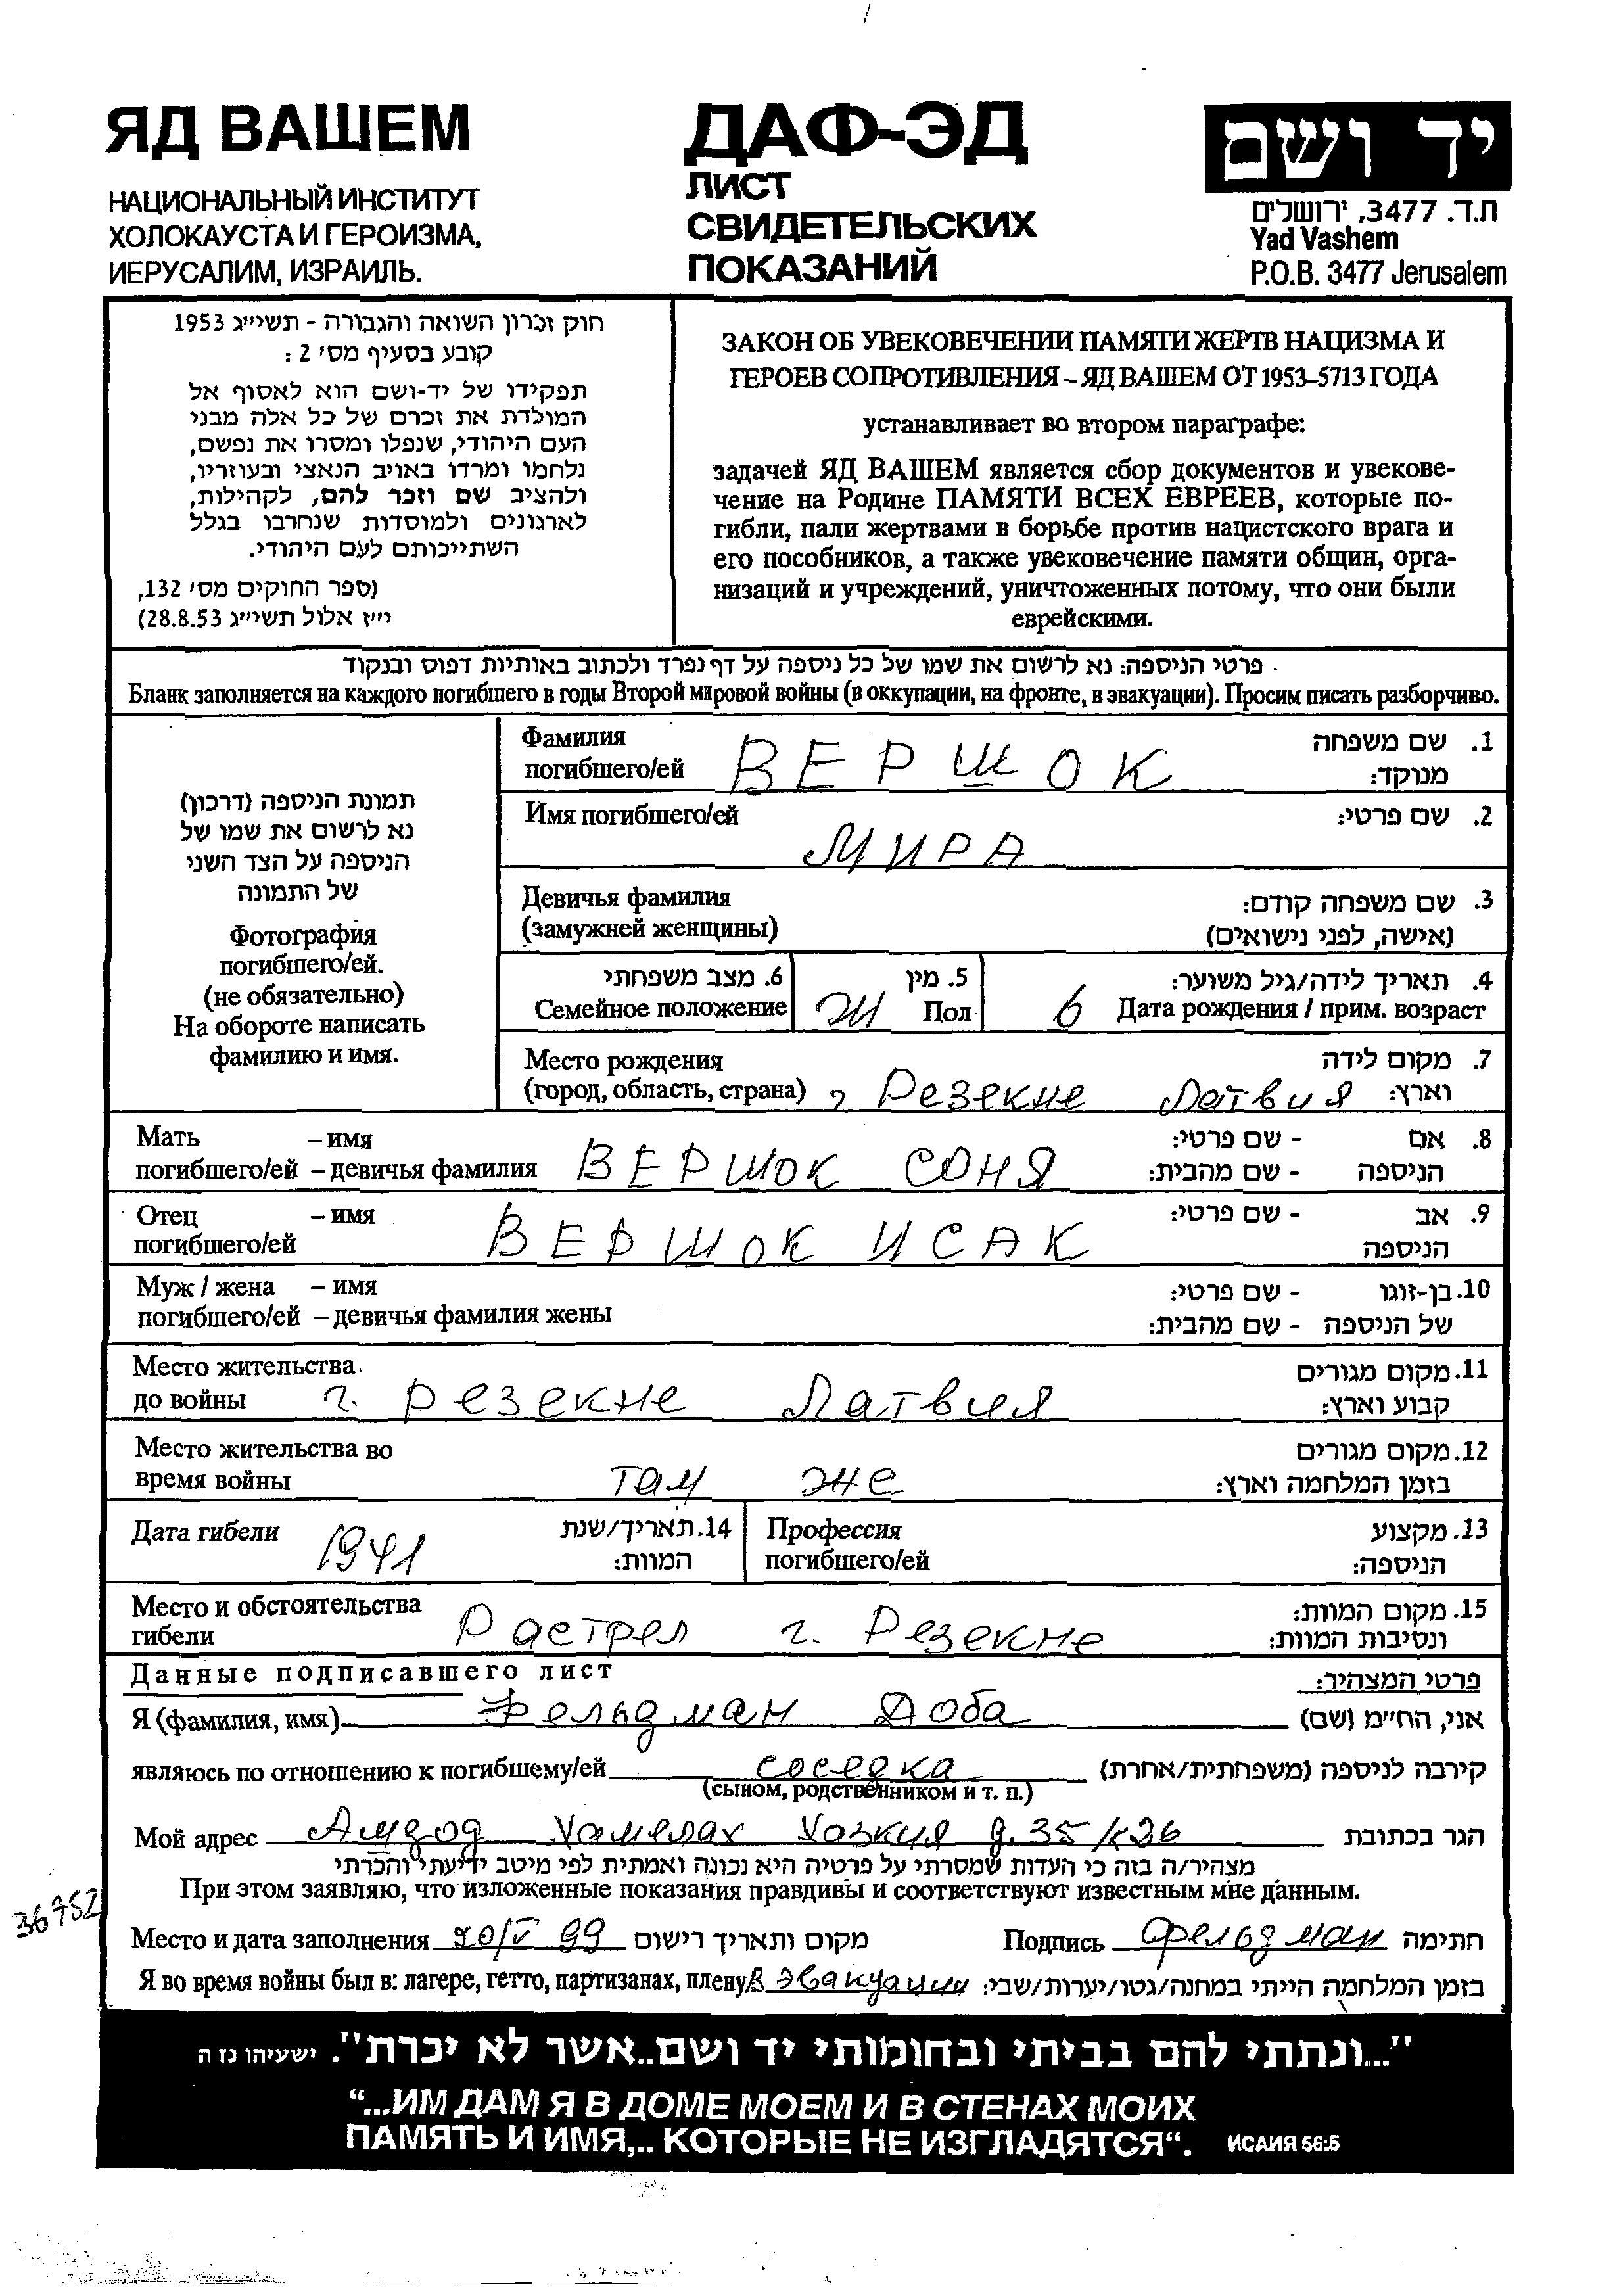 ЯД ВАШЕМ
НАЦИОНАЛЬНЫЙ ИНСТИТУТ
ХОЛОКАУСТА И ГЕРОИЗМА,
ИЕРУСАЛИМ, ИЗРАИЛЬ.
ДАФ-ЭД
ЛИСТ
СВИДЕТЕЛЬСКИХ
ПОКАЗАНИЙ
יד ושם
ת.ד. 3477, ירושלים
Yad Vashem
P.O.B. 3477 Jerusalem
חוק זכרון השואה והגבורה - תשי״ג 1953
קובע בסעיף מס׳ 2 :
תפקידו של יד-ושם הוא לאסוף אל
המולדת את זכרם של כל אלה מבני
העם היהודי, שנפלו ומסרו את נפשם,
נלחמו ומרדו באויב הנאצי ובעוזריו,
ולהציב שם וזכר להם, לקהילות,
לארגונים ולמוסדות שנחרבו בגלל
השתייכותם לעם היהודי.
(ספר החוקים מס׳ 132,
י״ז אלול תשי״ג 28.8.53)
ЗАКОН ОБ УВЕКОВЕЧЕНИИ ПАМЯТИ ЖЕРТВ НАЦИЗМА И
ГЕРОЕВ СОПРОТИВЛЕНИЯ – ЯД ВАШЕМ ОТ 1953-5713 ГОДА
устанавливает во втором параграфе:
задачей ЯД ВАШЕМ является сбор документов и увекове-
чение на Родине ПАМЯТИ ВСЕХ ЕВРЕЕВ, которые по-
гибли, пали жертвами в борьбе против нацистского врага и
его пособников, а также увековечение памяти общин, орга-
низаций и учреждений, уничтоженных потому, что они были
еврейскими.
פרטי הניספה: נא לרשום את שמו של כל ניספה על דף נפרד ולכתוב באותיות דפוס ובנקוד
Бланк заполняется на каждого погибшего в годы Второй мировой войны (в оккупации, на фронте, в эвакуации). Просим писать разборчиво.
תמונת הניספה (דרכון)
נא לרשום את שמו של
הניספה על הצד השני
של התמונה
Фотография
погибшего/ей.
(не обязательно)
На обороте написать
фамилию и имя.
Фамилия 1. שם משפחה
погибшего/ей ВЕРШОК מנוקד:
Имя погибшего/ей 2. שם פרטי:
МИРА
Девичья фамилия 3. שם משפחה קודם:
(замужней женщины) (אישה, לפני נישואים)
6. מצב משפחתי 5. מין 4. תאריך לידה/גיל משוער:
Семейное положение Ж Пол 6 Дата рождения / прим. возраст
Место рождения 7. מקום לידה
(город, область, страна) г Резекне Латвия וארץ:
Мать – имя 8. אם - שם פרטי:
погибшего/ей – девичья фамилия ВЕРШОК СОНЯ הניספה - שם מהבית:
Отец – имя 9. אב - שם פרטי:
погибшего/ей ВЕРШОК ИСАК הניספה
Муж / жена – имя 10. בן-זוגו - שם פרטי:
погибшего/ей – девичья фамилия жены של הניספה - שם מהבית:
Место жительства 11. מקום מגורים
до войны г. Резекне Латвия קבוע וארץ:
Место жительства во 12. מקום מגורים
время войны там же בזמן המלחמה וארץ:
Дата гибели 1941 14. תאריך/שנת
המוות:
Профессия 13. מקצוע
погибшего/ей הניספה:
Место и обстоятельства 15. מקום המוות:
гибели Растрел г. Резекне ונסיבות המוות:
Данные подписавшего лист פרטי המצהיר:
Я (фамилия, имя) Фельдман Доба אני, הח״מ (שם)
являюсь по отношению к погибшему/ей соседка קירבה לניספה (משפחתית/אחרת)
(сыном, родственником и т. п.)
Мой адрес Ашдод Хамелах Хазкия д. 35/к26 הגר בכתובת
מצהיר/ה בזה כי העדות שמסרתי על פרטיה היא נכונה ואמתית לפי מיטב ידיעתי והכרתי
При этом заявляю, что изложенные показания правдивы и соответствуют известным мне данным.
36752
Место и дата заполнения 20/V 99 מקום ותאריך רישום Подпись Фельдман חתימה
Я во время войны был в: лагере, гетто, партизанах, плену в эвакуации בזמן המלחמה הייתי במחנה/גטו/יערות/שבי:
"...ונתתי להם בביתי ובחומותי יד ושם..אשר לא יכרת". ישעיהו נז ה
“...ИМ ДАМ Я В ДОМЕ МОЕМ И В СТЕНАХ МОИХ
ПАМЯТЬ И ИМЯ,.. КОТОРЫЕ НЕ ИЗГЛАДЯТСЯ“. ИСАИЯ 56:5